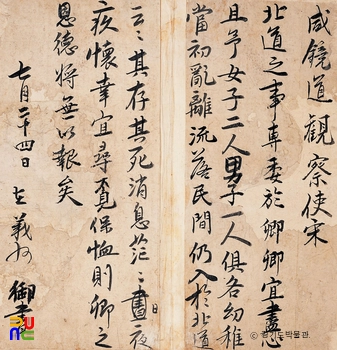 咸鏡道觀察使宋
北道之事專委於卿卿宜盡心
且予女子二人男子一人俱各幼稚
當初亂離流落民間仍入於北道
云云其存其死消息茫茫晝夜
疚懷幸宜尋覓保恤則卿之
恩德將無以報矣
七月二十四日在義州 御書
경기도박물관